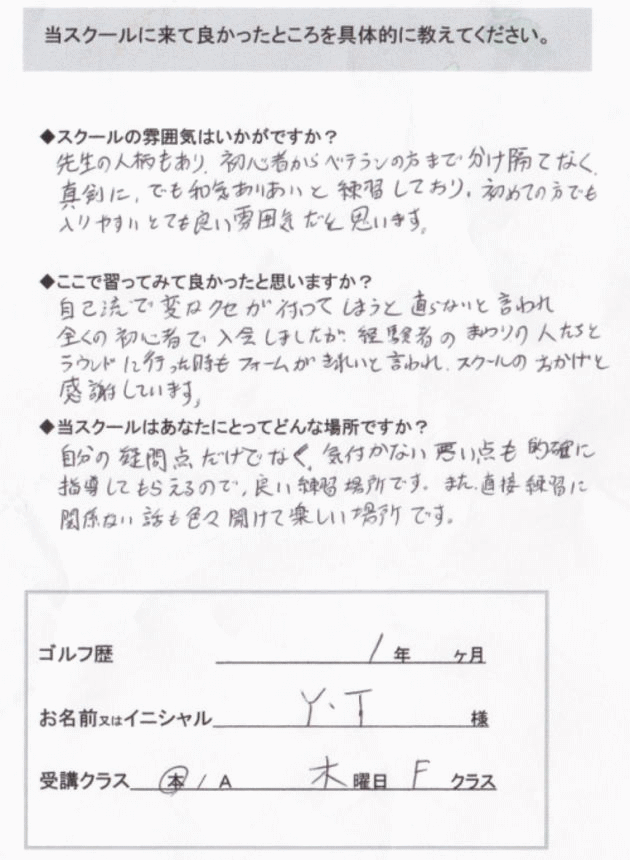 当スクールに来て良かったところを具体的に教えてください。
◆スクールの雰囲気はいかがですか？
先生の人柄もあり、初心者からベテランの方まで分け隔てなく、
真剣に、でも和気あいあいと練習しており、初めての方でも
入りやすいとても良い雰囲気だと思います。
◆ここで習ってみて良かったと思いますか？
自己流で変なクセが付いてしまうと直らないと言われ
全くの初心者で入会しましたが、経験者のまわりの人たちと
ラウンドに行った時もフォームがきれいと言われ、スクールのおかげと
感謝しています。
◆当スクールはあなたにとってどんな場所ですか？
自分の疑問点だけでなく、気付かない悪い点も的確に
指導してもらえるので、良い練習場所です。また、直接練習に
関係ない話も色々聞けて楽しい場所です。
ゴルフ歴 1年 ヶ月
お名前又はイニシャル Y・T 様
受講クラス 本 / A 木曜日 F クラス